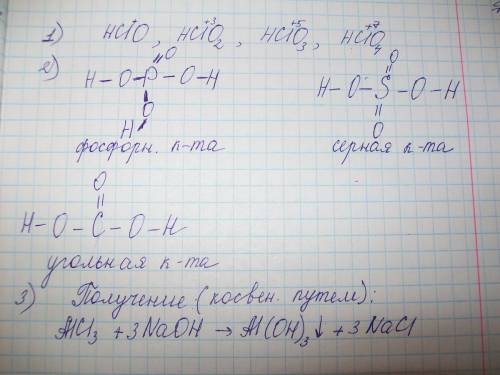 1) HClO, HClO₂, HClO₃, HClO₄ (+, +3, +5, +7)
2)
O
H – O – P – O – H
O
H
фосфорн. к-та
O
H – O – S – O – H
O
серная к-та
O
H – O – C – O – H
угольная к-та
3) Получение (косвен. путем):
AlCl₃ + 3NaOH → Al(OH)₃↓ + 3NaCl